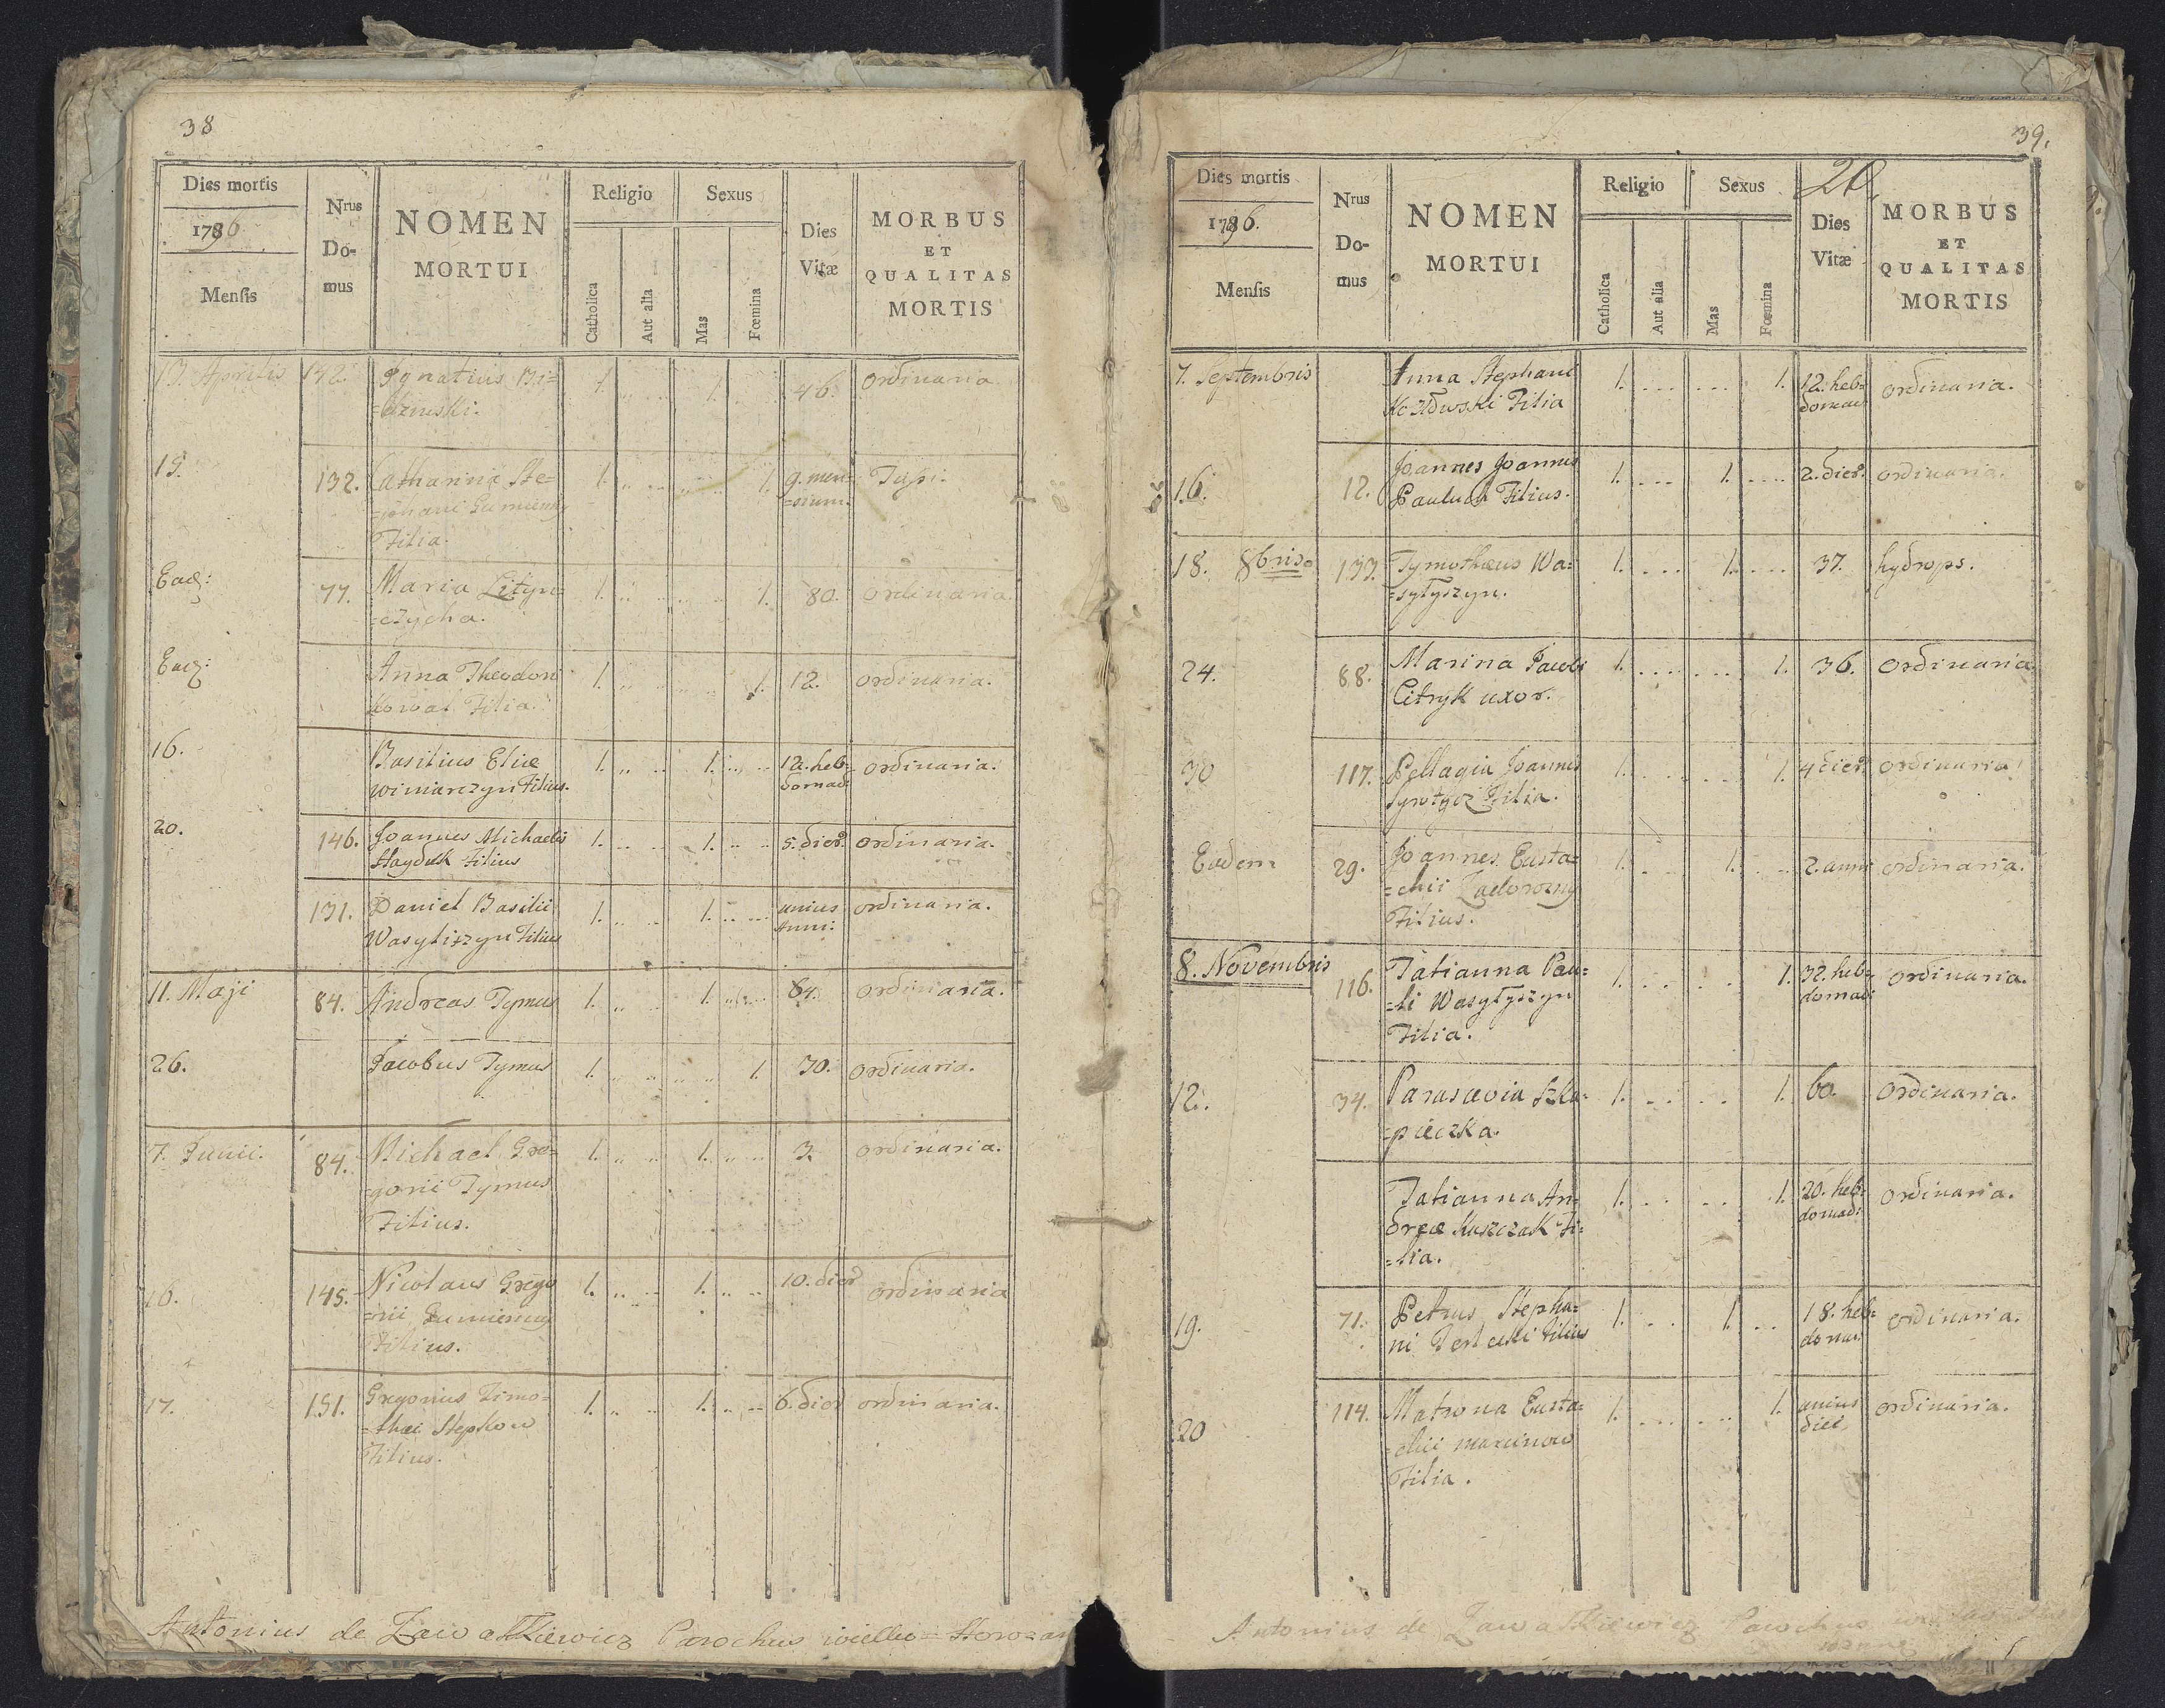 38
Dies mortis
1796
Mensis
Nrus
Do-
mus
NOMEN
MORTUI
Religio
Catholica
Aut alia
Sexus
Mas
Fœmina
Dies
Vitæ
MORBUS
ET
QUALITAS
MORTIS
13. Aprilis 142. Ignatius 1. 1. 46. ordinaria
15. 132. Catharina Ste= 1. 1. 9. men= Tussi.
=phani Gumienny =sium.
Filia.
Ead: 77. Maria Lityn= 1. 1. 80. ordinaria
=czycha.
Ead: Anna Theodori 1. 1. 12. ordinaria.
Kowal Filia.
16. Basilius Eliæ 1. 1. 12. heb= ordinaria.
winiarczyn Filius. domad:
20. 146. Joannes Michaelis 1. 1. 5. dier. ordinaria.
Hayduk Filius
131. Daniel Basilii 1. 1. unius ordinaria.
Wasyliszyn Filius Anni:
11. Maji 84. Andreas Tymus 1. 1. 64. ordinaria.
26. Jacobus Tymus 1. 1. 30. ordinaria.
7. Junii. 84. Michael Gre= 1. 1. 3. ordinaria.
=gorii Tymus
Filius.
16. 145. Nicolaus Grego 1. 1. 10. dier ordinaria
=rii Gumienny
Filius.
17. 151. Gregorius Timo= 1. 1. 6. dier ordinaria.
=thæi Stepkow
Filius.
Antonius de Zawałkiewicz Parochus
39.
20
Dies mortis
1796.
Mensis
Nrus
Do-
mus
NOMEN
MORTUI
Religio
Catholica
Aut alia
Sexus
Mas
Fœmina
Dies
Vitæ
MORBUS
ET
QUALITAS
MORTIS
7. Septembris Anna Stephani 1. 1. 12. heb= ordinaria.
Filia domad
16. 12. Joannes Joannis 1. 1. 2. dier. ordinaria.
Pauluch Filius.
18. 8bris. 133. Tymothæus Wa= 1. 1. 37. hydrops.
=syłyszyn.
24. 88. Marina Jacobi 1. 1. 36. ordinaria.
Citryk uxor.
30 117. Pellagia Joannis 1. 1. 4 dier. ordinaria
Filia.
Eadem 29. Joannes Eusta= 1. 1. 2. anni ordinaria.
=chii Zadorozny
Filius.
8. Novembris 116. Tatianna Pau= 1. 1. 32. heb= ordinaria.
=li Wasyłyszyn domad:
Filia.
12. 34. Parascevia Szla= 1. 1. 60. ordinaria.
=pieczka.
Tatianna An= 1. 1. 20. heb= ordinaria.
dreæ Kuszczak Fi= domad:
=lia.
19. 71. Petrus Stepha= 1. 1. 18. heb= ordinaria.
ni Terlecki Filius domad.
20 114. Matrona Eusta= 1. 1. unius ordinaria.
=chii marcinow diei
Filia.
Antonius de Zawałkiewicz Parochus